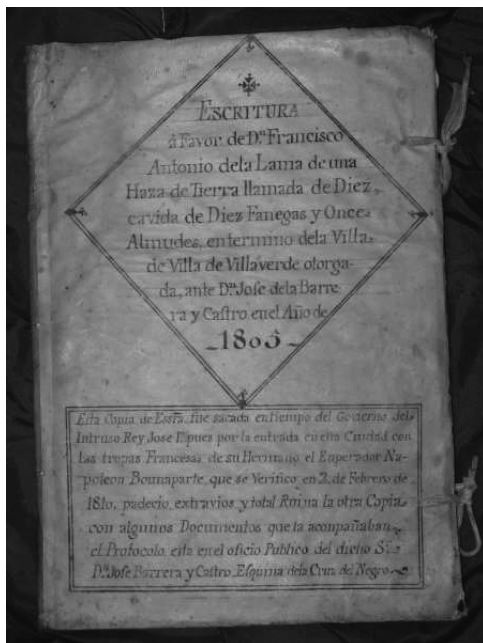 ESCRITURA
á Favor de D.ⁿ Francisco
Antonio dela Lama de una
Haza de Tierra llamada de Diez,
cavida de Diez Fanegas y Once
Almudes, en termino dela Villa
de Villa de Villaverde otorga-
da, ante D.ⁿ Jose dela Barre
ra y Castro en el Año de
1805
Esta Copia de Essrâ. fue sacada en tiempo del Govierno del
Intruso Rey Jose I. pues por la entrada en esta Ciudad con
las tropas Francesas de su Hermano el Enperador Na-
poleon Bounaparte, que se Verifico en 2. de Febrero de
1810. padecio, extravios y total Ruina la otra Copia
con algunos Documentos que la aconpañaban
el Protocolo, esta en el oficio Publico del dicho S.
D.ⁿ Jose Barrera y Castro Esquina dela Cruz del Negro